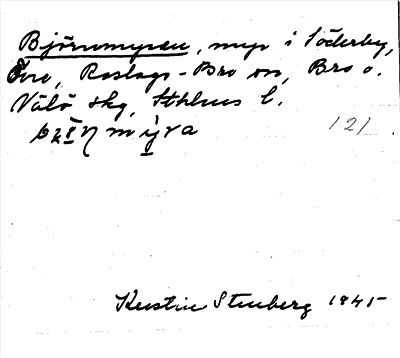 Björnmyran, myr i Söderby,
Roslags-Bro sn, Bro o.
Vätö skg, Sthlms l.
121
Kerstin Stenberg 1945